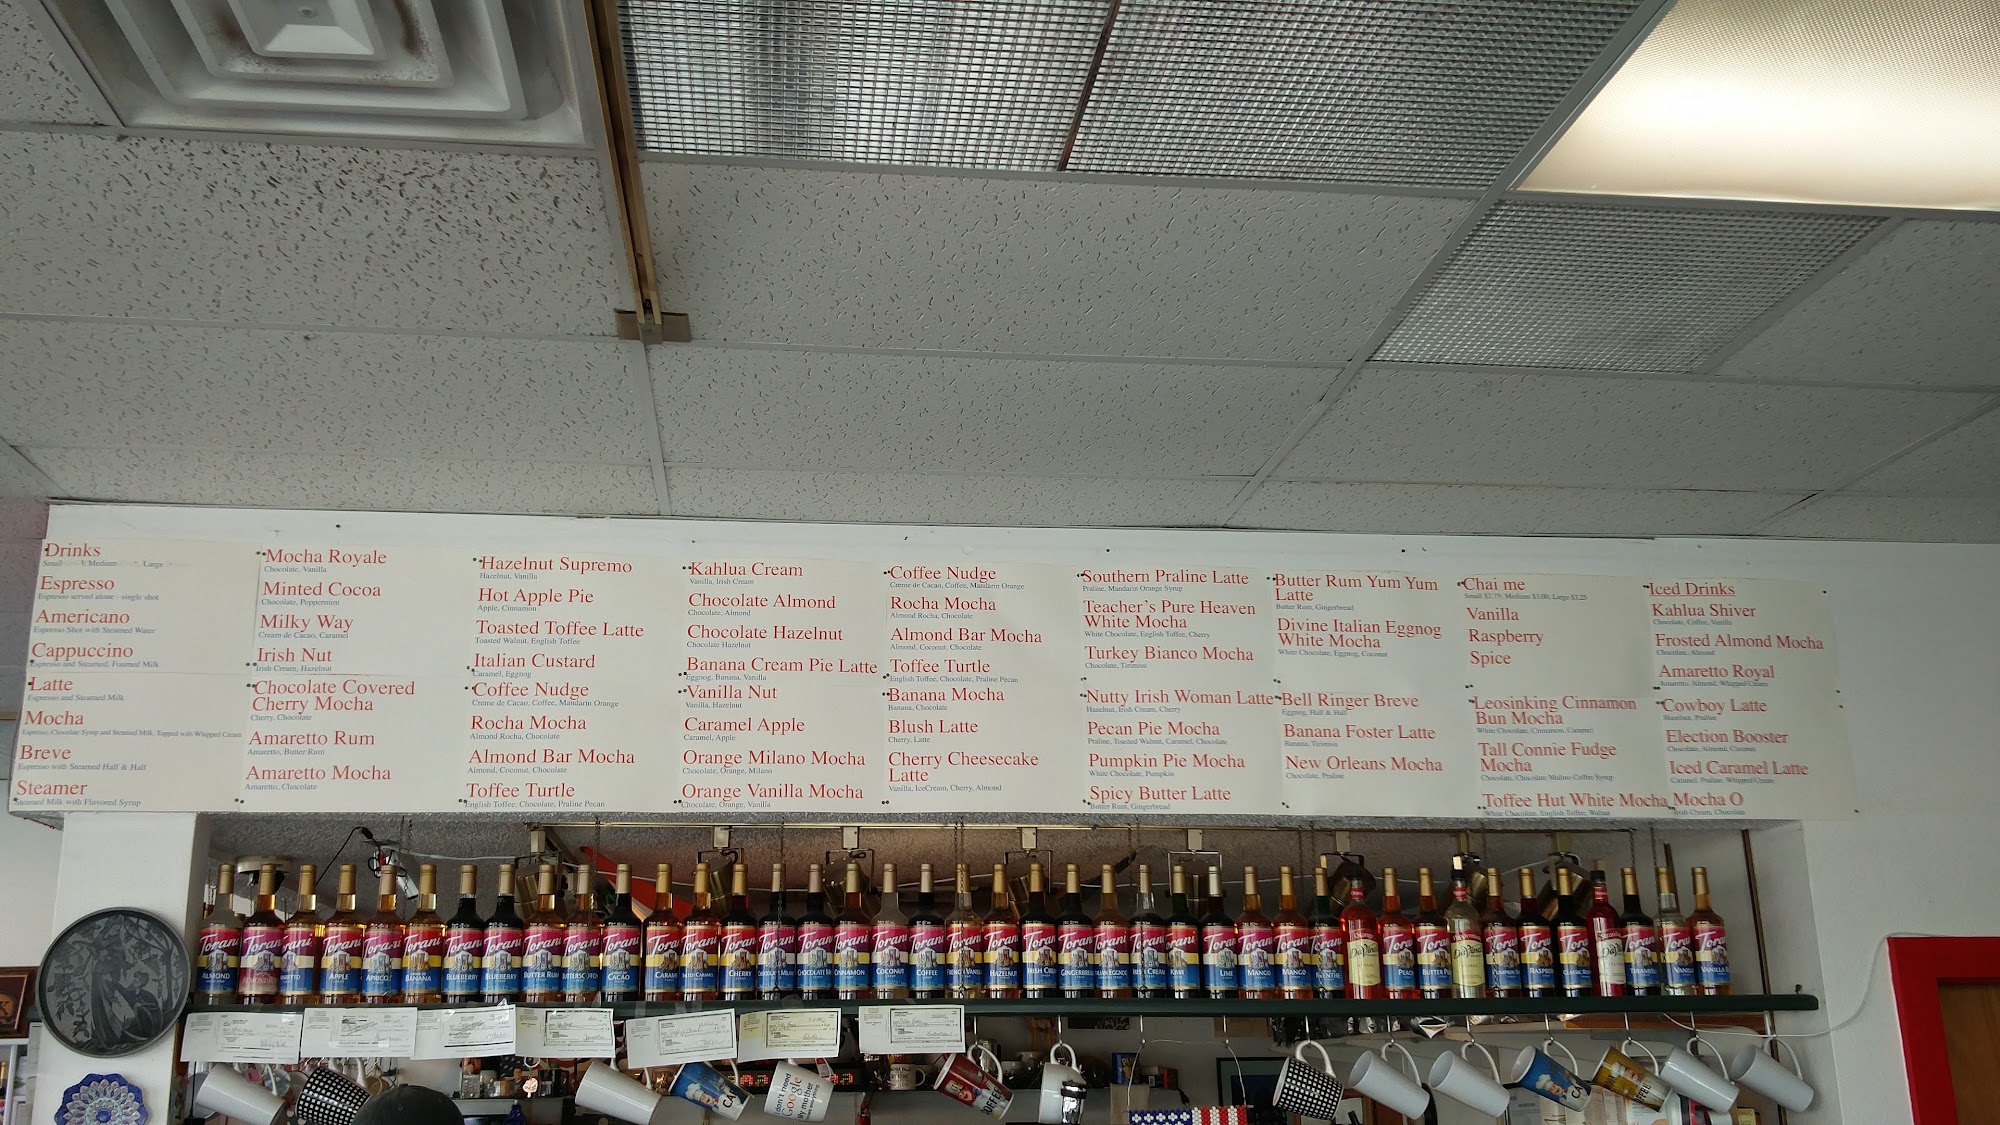 Drinks
Small Medium Large
Espresso
Espresso served alone - single shot
Americano
Espresso Shot with Steamed Water
Cappuccino
Espresso and Steamed, Foamed Milk
Latte
Espresso and Steamed Milk
Mocha
Espresso, Chocolate Syrup and Steamed Milk, Topped with Whipped Cream
Breve
Espresso with Steamed Half & Half
Steamer
Steamed Milk with Flavored Syrup
Mocha Royale
Chocolate, Vanilla
Minted Cocoa
Chocolate, Peppermint
Milky Way
Cream de Cacao, Caramel
Irish Nut
Irish Cream, Hazelnut
Chocolate Covered
Cherry Mocha
Cherry, Chocolate
Amaretto Rum
Amaretto, Butter Rum
Amaretto Mocha
Amaretto, Chocolate
Hazelnut Supremo
Hazelnut, Vanilla
Hot Apple Pie
Apple, Cinnamon
Toasted Toffee Latte
Toasted Walnut, English Toffee
Italian Custard
Caramel, Eggnog
Coffee Nudge
Creme de Cacao, Coffee, Mandarin Orange
Rocha Mocha
Almond Rocha, Chocolate
Almond Bar Mocha
Almond, Coconut, Chocolate
Toffee Turtle
English Toffee, Chocolate, Praline Pecan
Kahlua Cream
Vanilla, Irish Cream
Chocolate Almond
Chocolate, Almond
Chocolate Hazelnut
Chocolate Hazelnut
Banana Cream Pie Latte
Eggnog, Banana, Vanilla
Vanilla Nut
Vanilla, Hazelnut
Caramel Apple
Caramel, Apple
Orange Milano Mocha
Chocolate, Orange, Milano
Orange Vanilla Mocha
Chocolate, Orange, Vanilla
Coffee Nudge
Creme de Cacao, Coffee, Mandarin Orange
Rocha Mocha
Almond Rocha, Chocolate
Almond Bar Mocha
Almond, Coconut, Chocolate
Toffee Turtle
English Toffee, Chocolate, Praline Pecan
Banana Mocha
Banana, Chocolate
Blush Latte
Cherry, Latte
Cherry Cheesecake
Latte
Vanilla, IceCream, Cherry, Almond
Southern Praline Latte
Praline, Mandarin Orange Syrup
Teacher's Pure Heaven
White Mocha
White Chocolate, English Toffee, Cherry
Turkey Bianco Mocha
Chocolate, Tirimisu
Nutty Irish Woman Latte
Hazelnut, Irish Cream, Cherry
Pecan Pie Mocha
Praline, Toasted Walnut, Caramel, Chocolate
Pumpkin Pie Mocha
White Chocolate, Pumpkin
Spicy Butter Latte
Butter Rum, Gingerbread
Butter Rum Yum Yum
Latte
Butter Rum, Gingerbread
Divine Italian Eggnog
White Mocha
White Chocolate, Eggnog, Coconut
Bell Ringer Breve
Eggnog, Half & Half
Banana Foster Latte
Banana, Tirimisu
New Orleans Mocha
Chocolate, Praline
Chai me
Small $2.75; Medium $3.00; Large $3.25
Vanilla
Raspberry
Spice
Leosinking Cinnamon
Bun Mocha
White Chocolate, Cinnamon, Caramel
Tall Connie Fudge
Mocha
Chocolate, Chocolate Malino Coffin Syrup
Toffee Hut White Mocha
White Chocolate, English Toffee, Walnut
Iced Drinks
Kahlua Shiver
Chocolate, Coffee, Vanilla
Frosted Almond Mocha
Chocolate, Almond
Amaretto Royal
Amaretto, Almond, Whipped Cream
Cowboy Latte
Hazelnut, Praline
Election Booster
Chocolate, Almond, Coconut
Iced Caramel Latte
Caramel, Praline, Whipped Cream
Mocha O
Irish Cream, Chocolate
Torani
ALMOND
APPLE
APRICOT
BANANA
BLUEBERRY
BLUEBERRY
BUTTER RUM
CACAO
CHERRY
COCONUT
COFFEE
HAZELNUT
IRISH CREAM
KIWI
LIME
MANGO
MANGO
DaVinci
PEACH
DaVinci
TIRAMISU
VANILLA
I don't need
Google
my mother